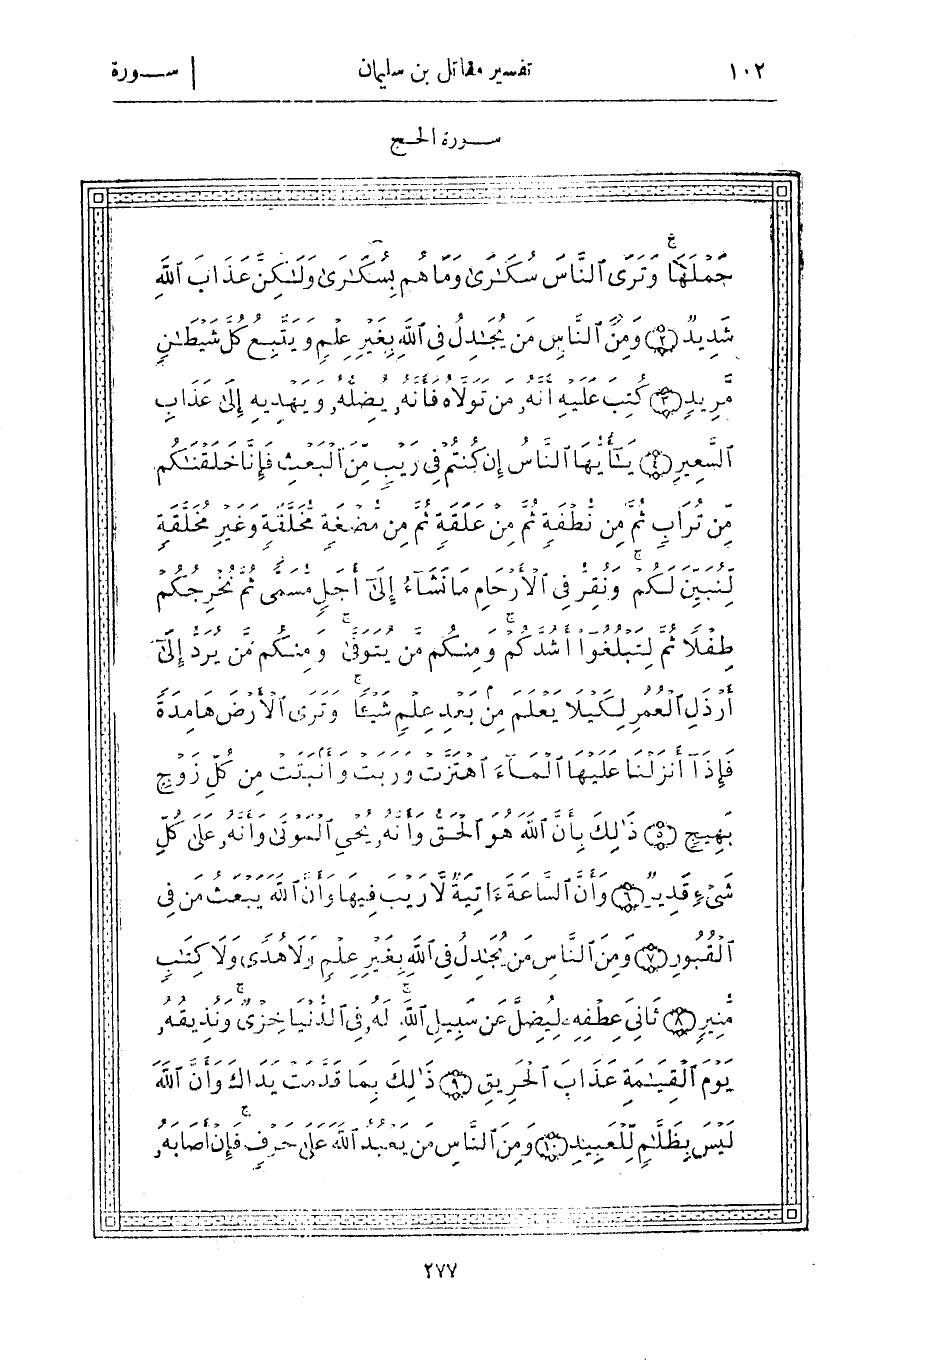 ١٠٢ تفسير مقاتل بن سليمان | ســورة
ســورة الحـج
حَمْلَهَا وَتَرَى ٱلنَّاسَ سُكَٰرَىٰ وَمَا هُم بِسُكَٰرَىٰ وَلَٰكِنَّ عَذَابَ ٱللَّهِ
شَدِيدٌ ﴿٢﴾ وَمِنَ ٱلنَّاسِ مَن يُجَٰدِلُ فِى ٱللَّهِ بِغَيْرِ عِلْمٍ وَيَتَّبِعُ كُلَّ شَيْطَٰنٍ
مَّرِيدٍ ﴿٣﴾ كُتِبَ عَلَيْهِ أَنَّهُۥ مَن تَوَلَّاهُ فَأَنَّهُۥ يُضِلُّهُۥ وَيَهْدِيهِ إِلَىٰ عَذَابِ
ٱلسَّعِيرِ ﴿٤﴾ يَٰٓأَيُّهَا ٱلنَّاسُ إِن كُنتُمْ فِى رَيْبٍ مِّنَ ٱلْبَعْثِ فَإِنَّا خَلَقْنَٰكُم
مِّن تُرَابٍ ثُمَّ مِن نُّطْفَةٍ ثُمَّ مِنْ عَلَقَةٍ ثُمَّ مِن مُّضْغَةٍ مُّخَلَّقَةٍ وَغَيْرِ مُخَلَّقَةٍ
لِّنُبَيِّنَ لَكُمْ وَنُقِرُّ فِى ٱلْأَرْحَامِ مَا نَشَآءُ إِلَىٰٓ أَجَلٍ مُّسَمًّى ثُمَّ نُخْرِجُكُمْ
طِفْلًا ثُمَّ لِتَبْلُغُوٓا۟ أَشُدَّكُمْ وَمِنكُم مَّن يُتَوَفَّىٰ وَمِنكُم مَّن يُرَدُّ إِلَىٰٓ
أَرْذَلِ ٱلْعُمُرِ لِكَيْلَا يَعْلَمَ مِنۢ بَعْدِ عِلْمٍ شَيْـًٔا وَتَرَى ٱلْأَرْضَ هَامِدَةً
فَإِذَآ أَنزَلْنَا عَلَيْهَا ٱلْمَآءَ ٱهْتَزَّتْ وَرَبَتْ وَأَنۢبَتَتْ مِن كُلِّ زَوْجٍۭ
بَهِيجٍ ﴿٥﴾ ذَٰلِكَ بِأَنَّ ٱللَّهَ هُوَ ٱلْحَقُّ وَأَنَّهُۥ يُحْىِ ٱلْمَوْتَىٰ وَأَنَّهُۥ عَلَىٰ كُلِّ
شَىْءٍ قَدِيرٌ ﴿٦﴾ وَأَنَّ ٱلسَّاعَةَ ءَاتِيَةٌ لَّا رَيْبَ فِيهَا وَأَنَّ ٱللَّهَ يَبْعَثُ مَن فِى
ٱلْقُبُورِ ﴿٧﴾ وَمِنَ ٱلنَّاسِ مَن يُجَٰدِلُ فِى ٱللَّهِ بِغَيْرِ عِلْمٍ وَلَا هُدًى وَلَا كِتَٰبٍ
مُّنِيرٍ ﴿٨﴾ ثَانِىَ عِطْفِهِۦ لِيُضِلَّ عَن سَبِيلِ ٱللَّهِ لَهُۥ فِى ٱلدُّنْيَا خِزْىٌ وَنُذِيقُهُۥ
يَوْمَ ٱلْقِيَٰمَةِ عَذَابَ ٱلْحَرِيقِ ﴿٩﴾ ذَٰلِكَ بِمَا قَدَّمَتْ يَدَاكَ وَأَنَّ ٱللَّهَ
لَيْسَ بِظَلَّٰمٍ لِّلْعَبِيدِ ﴿١٠﴾ وَمِنَ ٱلنَّاسِ مَن يَعْبُدُ ٱللَّهَ عَلَىٰ حَرْفٍ فَإِنْ أَصَابَهُۥ
٢٧٧